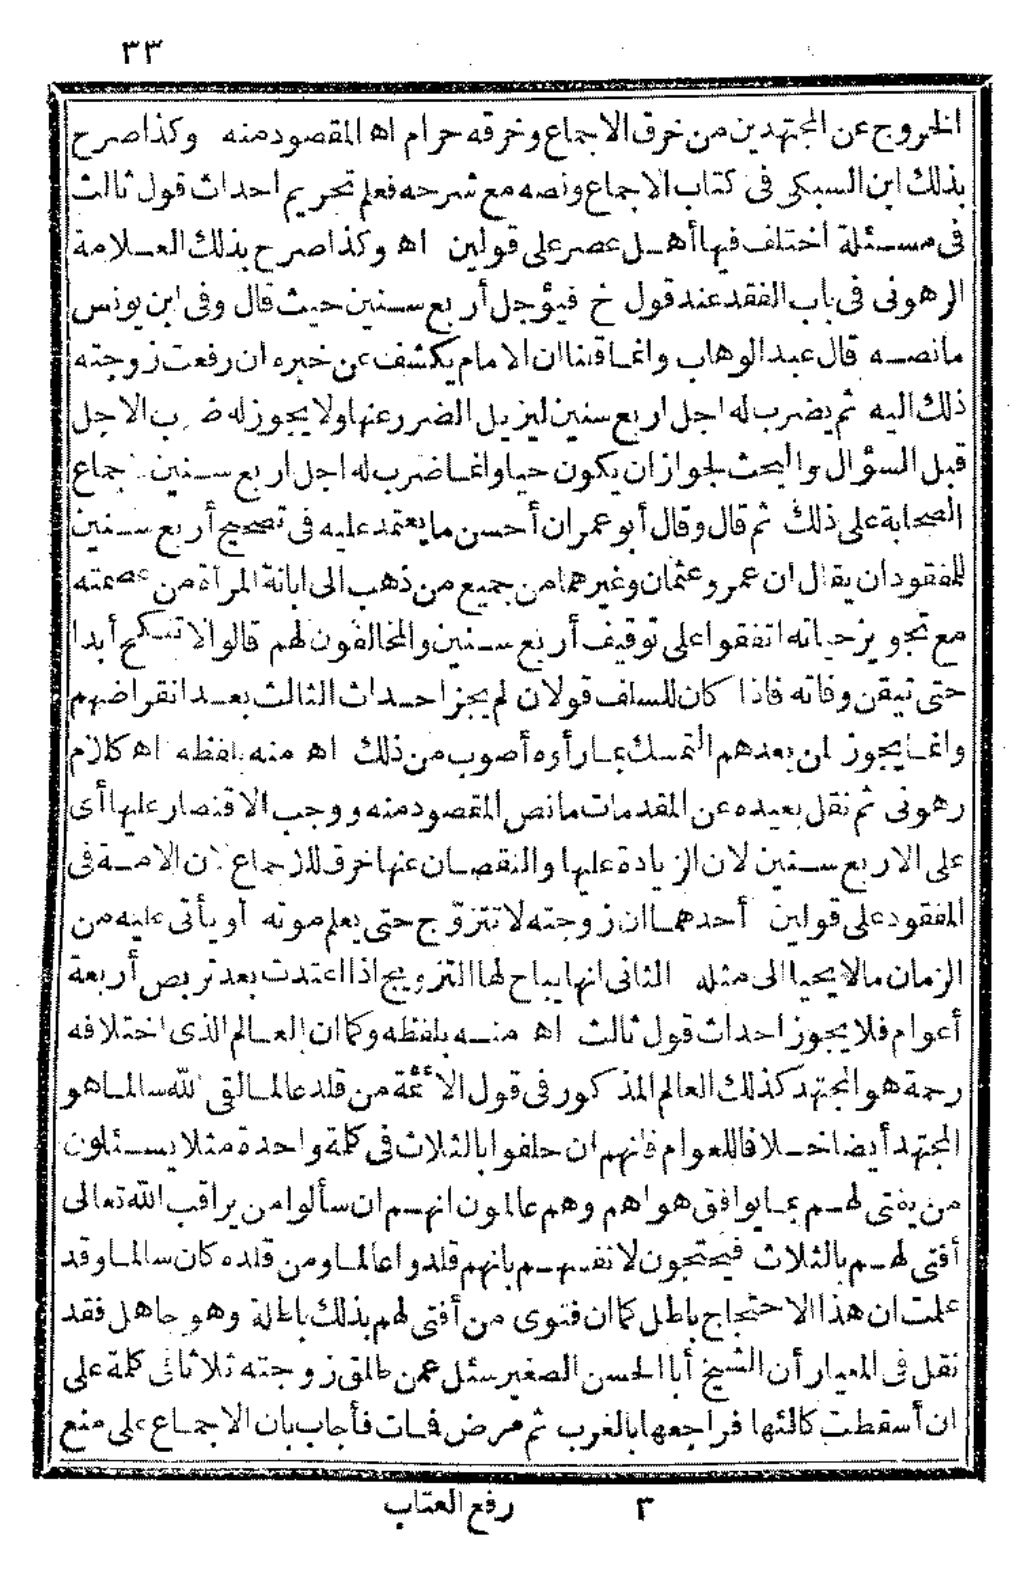 ٣٣
الخروج عن المجتهدين من خرق الاجماع وخرقه حرام اه المقصود منه وكذا صرح
بذلك ابن السبكى فى كتاب الاجماع ونصه مع شرحه فعلم تحريم احداث قول ثالث
فى مسئلة اختلف فيها أهل عصر على قولين اه وكذا صرح بذلك العلامة
الرهونى فى باب الفقد عند قول خ فيؤجل أربع سنين حيث قال وفى ابن يونس
مانصه قال عبد الوهاب وانما قلنا ان الامام يكشف عن خبره ان رفعت زوجته
ذلك اليه ثم يضرب له اجل اربع سنين ليزيل الضرر عنها ولا يجوز له ضرب الاجل
قبل السؤال والبحث لجواز ان يكون حيا وانما ضرب له اجل اربع سنين لاجماع
الصحابة على ذلك ثم قال وقال أبو عمران أحسن ما يعتمد عليه فى تصحيح أربع سنين
للمفقود ان يقال ان عمر وعثمان وغيرهما من جميع من ذهب الى ابانة المرأة من عصمته
مع تجويز حياته اتفقوا على توقيف أربع سنين والمخالفون لهم قالوا لا تنكح أبدا
حتى تيقن وفاته فاذا كان للسلف قولان لم يجز احداث الثالث بعد انقراضهم
وانما يجوز لمن بعدهم التمسك بما رأوه أصوب من ذلك اه منه بلفظه اه كلام
رهونى ثم نقل بعيده عن المقدمات ما نص المقصود منه ووجب الاقتصار عليها أى
على الاربع سنين لان الزيادة عليها والنقصان عنها خرق للاجماع لان الامة فى
المفقود على قولين أحدهما ان زوجته لا تتزوج حتى يعلم موته أو يأتى عليه من
الزمان مالا يحيا الى مثله الثانى انها يباح لها التزويج اذا اعتدت بعد تربص أربعة
أعوام فلا يجوز احداث قول ثالث اه منه بلفظه وكما ان العالم الذى اختلافه
رحمة هو المجتهد كذلك العالم المذكور فى قول الأئمة من قلد عالما لقى الله سالما هو
المجتهد أيضا خلافا للعوام فانهم ان حلفوا بالثلاث فى كلمة واحدة مثلا يسئلون
من يفتى لهم بما يوافق هواهم وهم عالمون انهم ان سألوا من يراقب الله تعالى
أفتى لهم بالثلاث فيحتجون لانفسهم بانهم قلدوا عالما ومن قلده كان سالما وقد
علمت ان هذا الاحتجاج باطل كما ان فتوى من أفتى لهم بذلك باطلة وهو جاهل فقد
نقل فى المعيار أن الشيخ أبا الحسن الصغير سئل عمن طلق زوجته ثلاثا فى كلمة على
ان أسقطت كالئها فراجعها بالغرب ثم مرض فمات فأجاب بان الاجماع على منع
٣ رفع العتاب